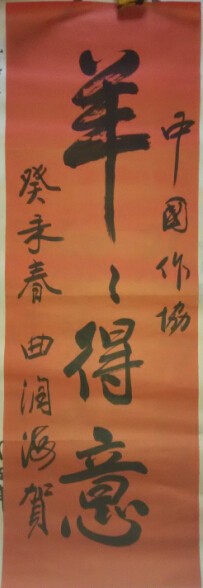 中国作協
羊〻得意
癸未春 曲润海賀